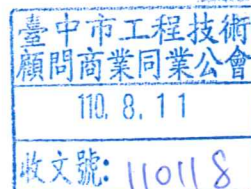 臺中市工程技術
顧問商業同業公會
110. 8. 11
收文號: 110118